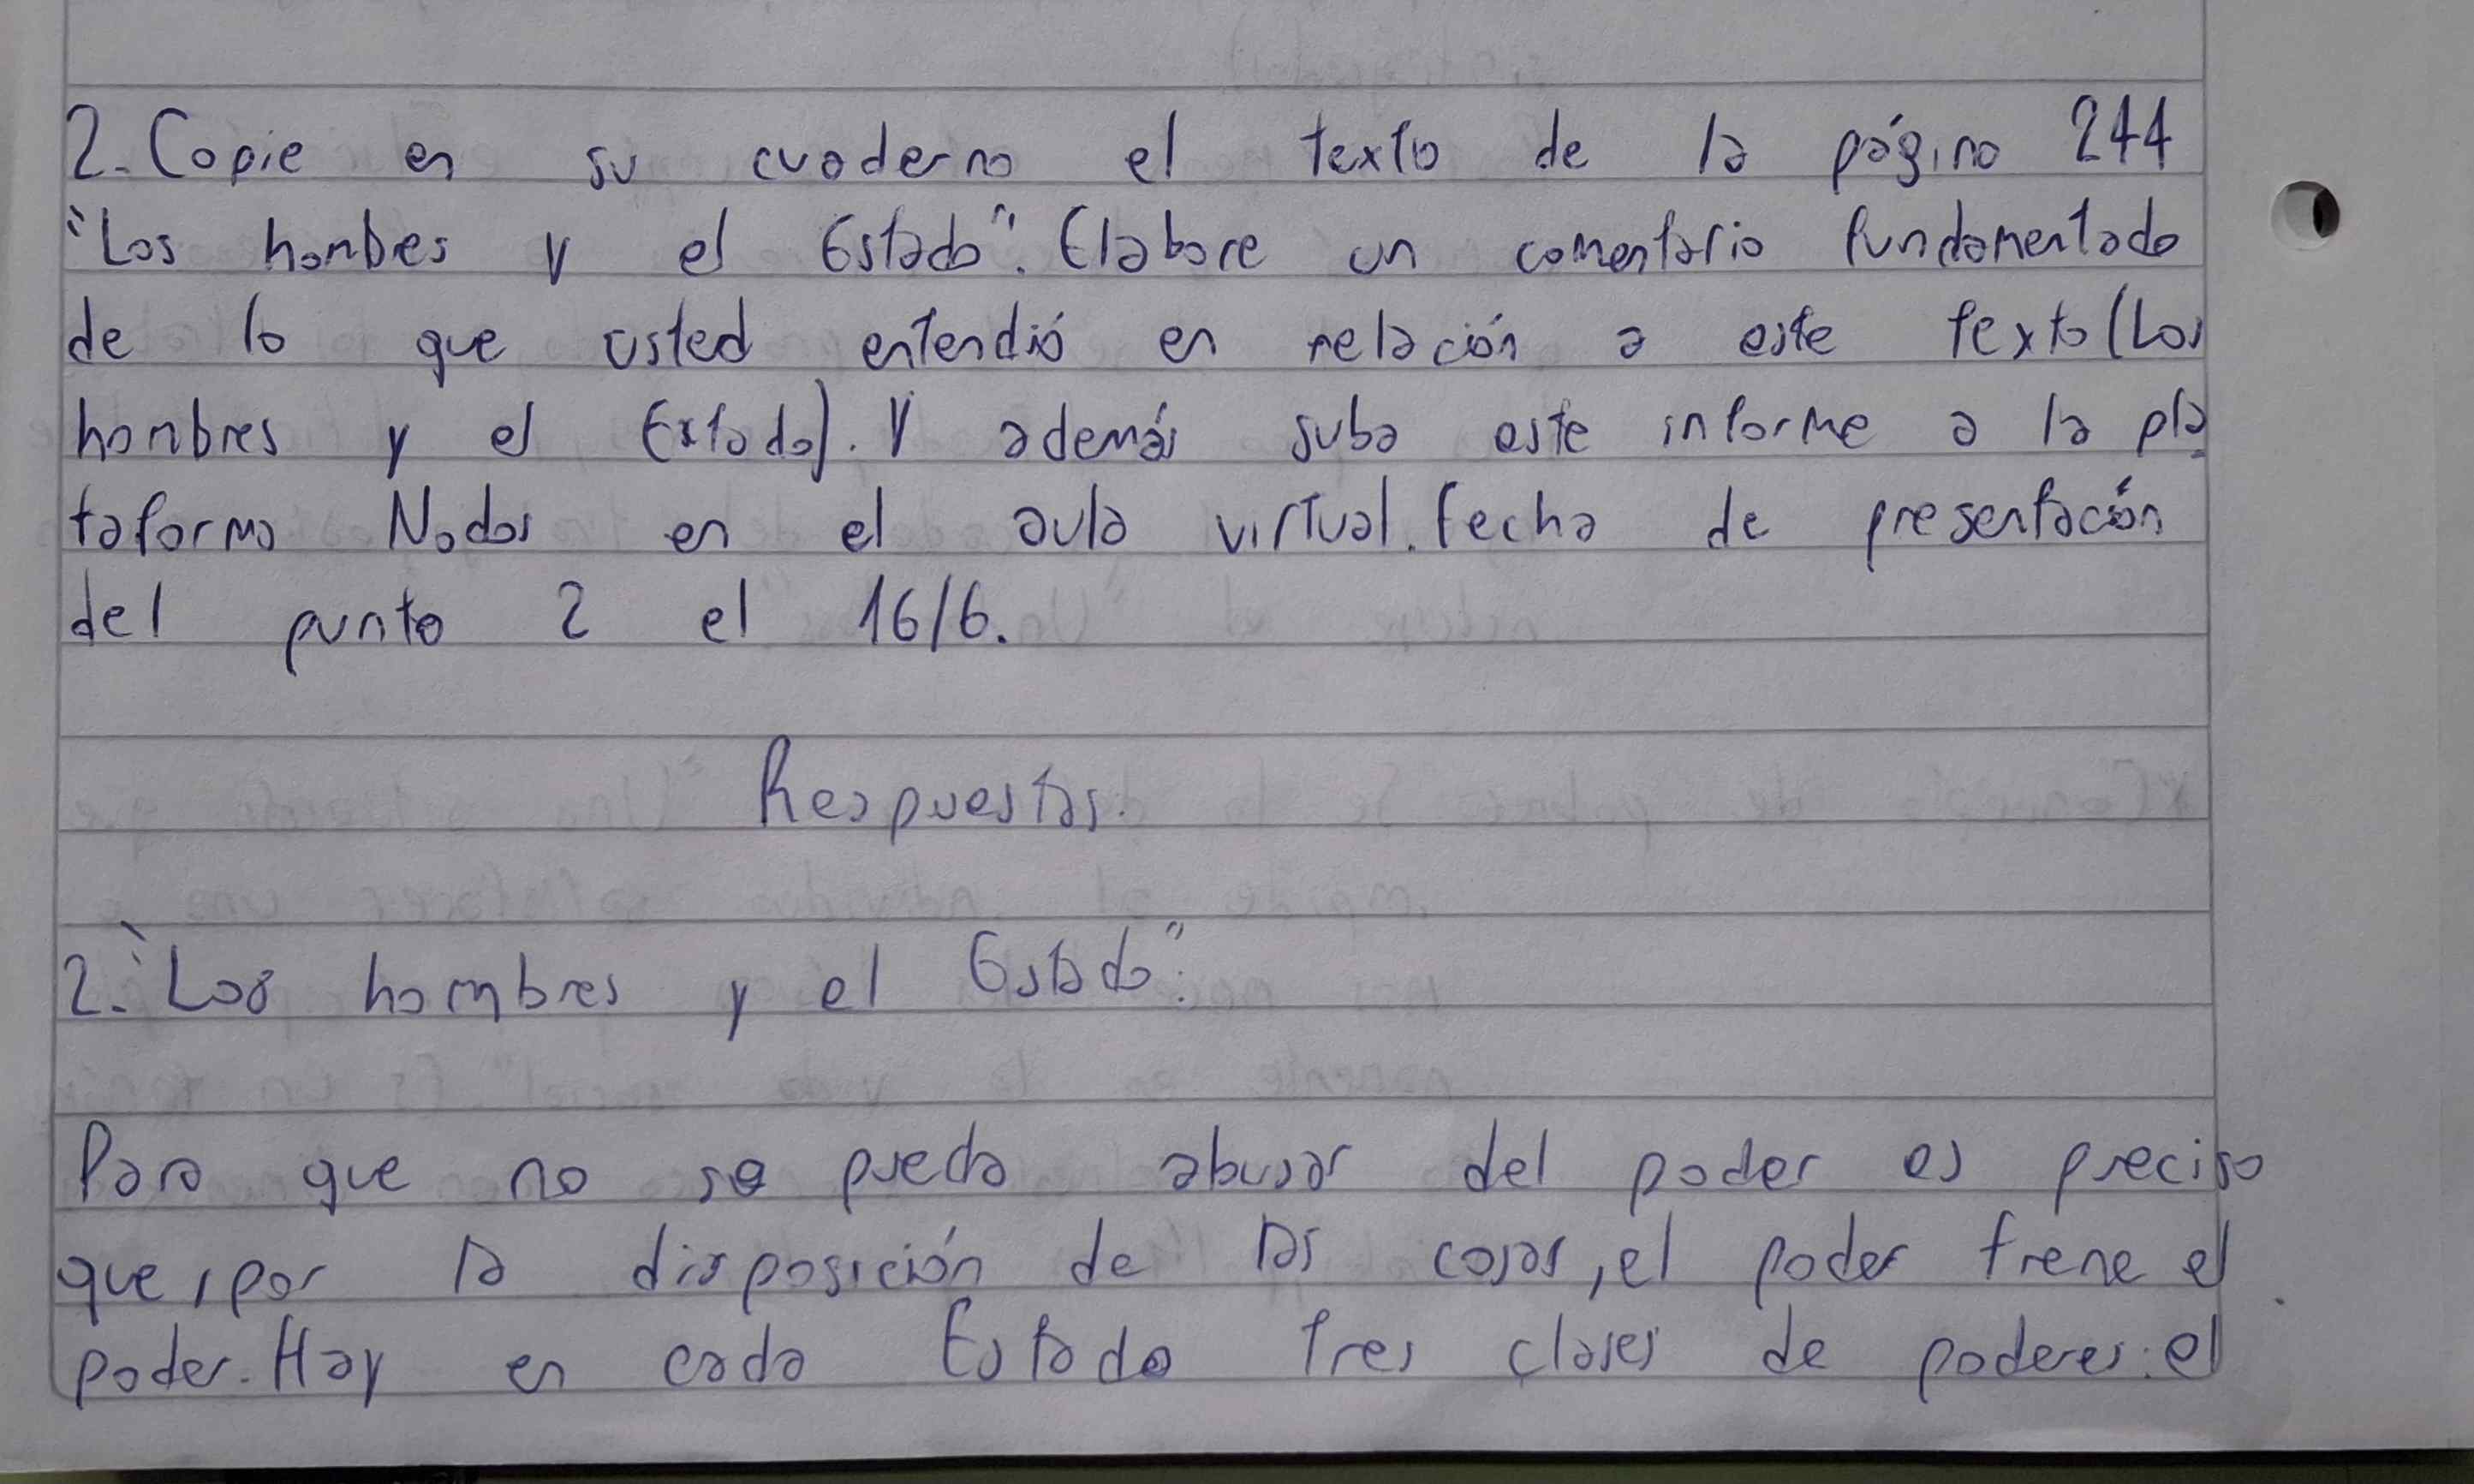 2. Copie en su cuaderno el texto de la página 244
"Los hombres y el Estado". Elabore un comentario fundamentado
de lo que usted entendió en relación a este texto (Los
hombres y el Extado). Y además suba este informe a la pla
taforma Nodos en el aula virtual. Fecha de presentación
del punto 2 el 16/6.
Respuestas.
2. "Los hombres y el Estado":
Para que no se pueda abusar del poder es preciso
que, por la disposición de las cosas, el poder frene el
poder. Hay en cada Estado tres clases de poderes: el